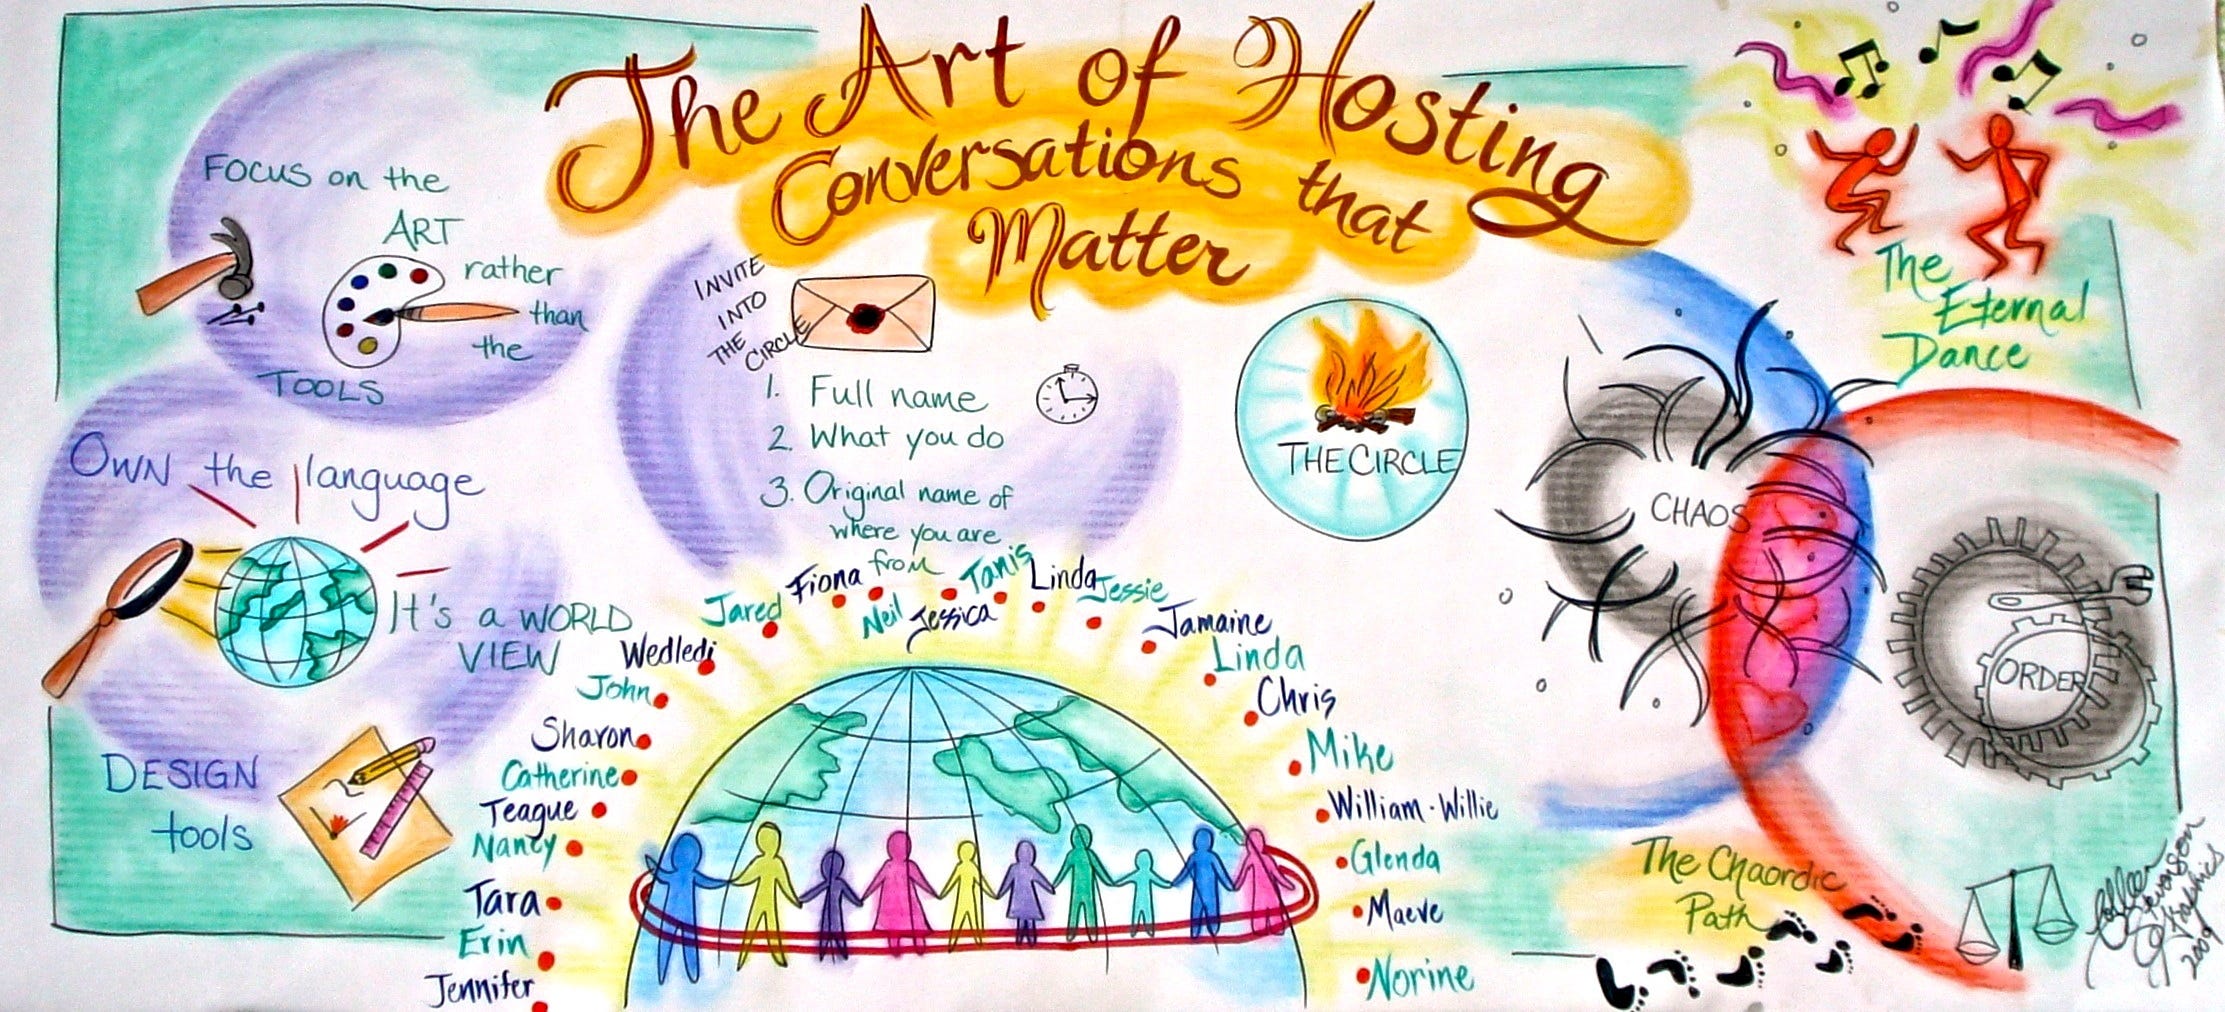 The Art of Hosting
Conversations that
Matter
FOCUS on the
ART
rather
than
the
TOOLS
OWN the language
It's a WORLD
VIEW
DESIGN
tools
INVITE
INTO
THE
CIRCLE
1. Full name
2. What you do
3. Original name of
where you are
from
THE CIRCLE
Jennifer
Erin
Tara
Nancy
Teague
Catherine
Sharon
John
Wedledi
Jared
Fiona
Neil
Jessica
Tanis
Linda
Jessie
Jamaine
Linda
Chris
Mike
William-Willie
Glenda
Maeve
Norine
The
Eternal
Dance
CHAOS
ORDER
The Chaordic
Path
Colleen
Stevenson
Graphics
2009